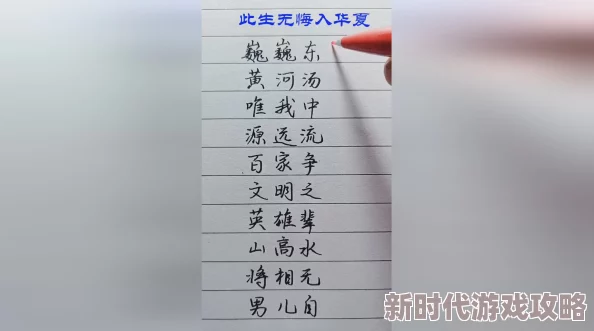 此生无悔入华夏
巍巍东
黄河汤
唯我中
源远流
百家争
文明之
英雄辈
山高水
将相无
男儿自
新时代游戏攻略